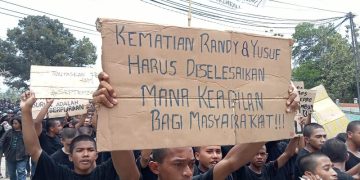 KEMATIAN RANDY & YUSUF
HARUS DISELESAIKAN
MANA KEADILAN
BAGI MASYARAKAT!!!
TUNTASKAN
ADALAH